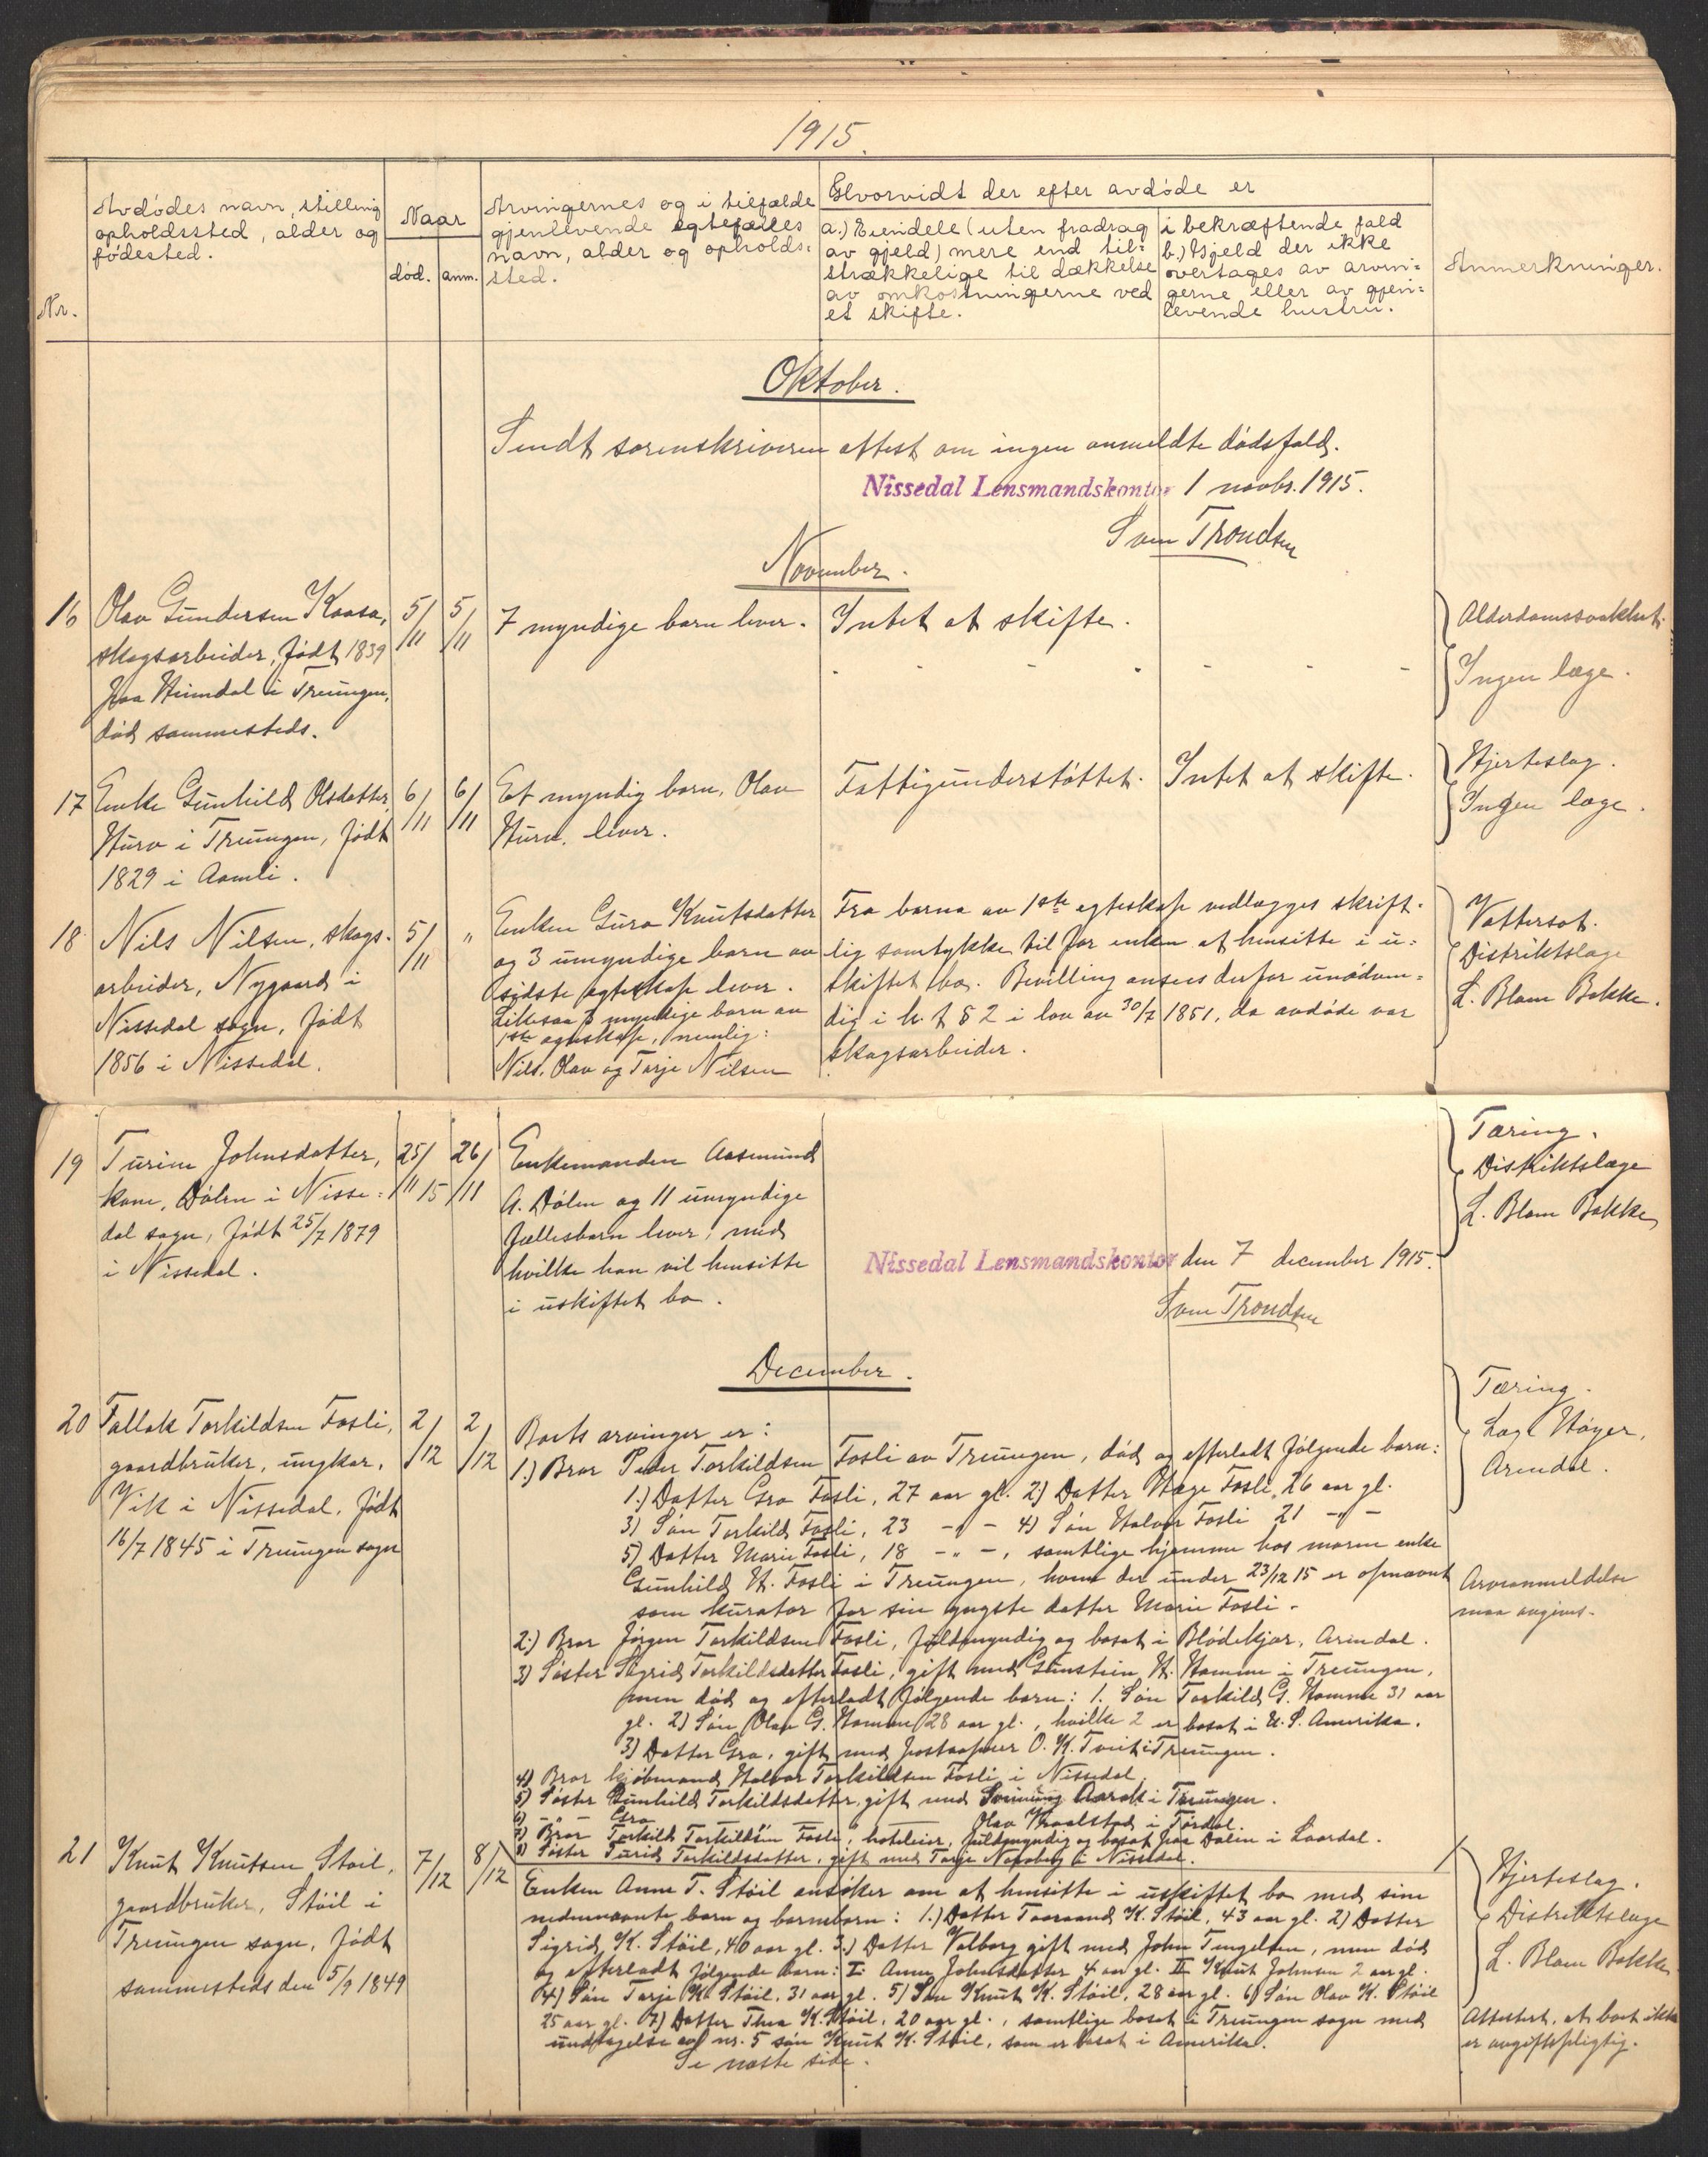 1915.
Nr.
Avdödes navn, stilling
opholdssted, alder og
födested.
Naar
död. anm.
Arvingernes og i tilfælde
gjenlevende egtefælles
navn, alder og opholds=
sted.
Hvorvidt der efter avdöde er
a.) Eiendele (uten fradrag
av gjeld) mere end til=
strækkelige til dækkelse
av omkostningerne ved
et skifte.
i bekræftende fald
b.) Gjeld der ikke
overtages av arvin=
gerne eller av gjen=
levende hustru.
Anmerkninger.
Oktober.
Sendt sorenskriveren attest om ingen anmeldte dødsfald.
Nissedal Lensmandskontor 1 novbr. 1915.
Sven Trondsen
November.
16 Olav Gundersen Kaasa,
skogsarbeider, født 1839
paa Heimdal i Treungen,
død sammesteds.
5/11 5/11
7 myndige barn lever.
Intet at skifte.
Alderdomssvakhet.
Ingen læge.
17 Enke Gunhild Olsdatter
Huru i Treungen, født
1829 i Aamli.
6/11 6/11
Et myndig barn, Olav
Huru, lever.
Fattigunderstøttet. Intet at skifte.
Hjerteslag.
Ingen læge.
18 Nils Nilsen, skogs-
arbeider, Nygaard i
Nissedal sogn, født
1856 i Nissedal.
5/11 "
Enken Guro Knutsdatter
og 3 umyndige barn av
sidste egteskap lever.
Likesaa 3 myndige barn av
1ste egteskap, nemlig:
Nils, Olav og Tarje Nilsen
Fra barna av 1ste egteskap vedlægges skrift-
lig samtykke til for enken at hensitte i u=
skiftet bo. Bevilling ansees derfor unødven=
dig i h. t § 2 i lov av 30/7 1851, da avdøde var
skogsarbeider.
Vattersot.
Distriktslæge
L. Blom Bakke.
19 Turine Johnsdatter,
kone, Dölen i Nisse=
dal sogn, født 25/7 1879
i Nissedal.
25/11 15 26/11
Enkemanden Aasmund
A. Dölen og 11 umyndige
fællesbarn lever, med
hvilke han vil hensitte
i uskiftet bo.
Tæring.
Distriktslæge
L. Blom Bakke
Nissedal Lensmandskontor den 7 december 1915.
Sven Trondsen
December.
20 Tallak Torkildsen Fosli,
gaardbruker, ungkar,
Vik i Nissedal, født
16/7 1845 i Treungen sogn
2/12 2/12
Boets arvinger er:
1.) Bror Peder Torkildsen Fosli av Treungen, død og efterladt følgende barn:
1.) Datter Gro Fosli, 27 aar gl. 2.) Datter Hæge Fosli 26 aar gl.
3) Søn Torkild Fosli, 23 - " - 4) Søn Halvor Fosli 21 - " -
5) Datter Marie Fosli, 18 - " -, samtlige hjemme hos moren enke
Gunhild H. Fosli i Treungen, hvem der under 23/12 15 er opnævnt
som kurator for sin yngste datter Marie Fosli.
2.) Bror Jörgen Torkildsen Fosli, fuldmyndig og bosat i Blödekjær, Arendal.
3) Søster Sigrid Torkildsdatter Fosli, gift med Gunstein H. Homme i Treungen,
men død og efterladt følgende barn: 1. Søn Torkild G. Homme 31 aar
gl. 2) Søn Olav G. Homme 28 aar gl., hvilke 2 er bosat i U. S. Amerika.
3) Datter Gro, gift med postaapner O. K. Tveit i Treungen.
4) Bror kjöbmand Halvor Torkildsen Fosli i Nissedal
5) Søster Gunhild Torkildsdatter, gift med Sveinung Aarak i Treungen.
6) - " - Gro Olav Kraalstad i Tørdal.
7) Bror Torkild Torkildsen Fosli, hoteleier, fuldmyndig og bosat paa Dalen i Laardal.
8) Søster Turid Torkildsdatter, gift med Tarje i Nissedal.
Tæring.
Læge Höyer,
Arendal.
Arveanmeldelse
maa avgives.
21 Knut Knutsen Stöil,
gaardbruker, Stöil i
Treungen sogn, født
sammesteds den 5/9 1849
7/12 8/12
Enken Anne T. Stöil ansøker om at hensitte i uskiftet bo med sine
nedennævnte barn og barnebarn: 1.) Datter Taaraand K. Stöil, 43 aar gl. 2) Datter
Sigrid K. Stöil, 40 aar gl. 3.) Datter Valborg gift med John Tengelsen, men død
og efterladt følgende barn: I Anne Johnsdatter 4 aar gl. II Knut Johnsen 2 aar gl.
4) Søn Tarje K. Stöil, 31 aar gl. 5) Søn Knut K. Stöil, 28 aar gl. 6) Søn Olav K. Stöil
25 aar gl. 7) Datter Thea K. Stöil, 20 aar gl., samtlige bosat i Treungen sogn med
undtagelse av nr. 5 søn Knut K. Stöil, som er bosat i Amerika.
Se næste side.
Hjerteslag.
Distriktslæge
L. Blom Bakke.
Attestert, at boet ikke
er avgiftspligtig.